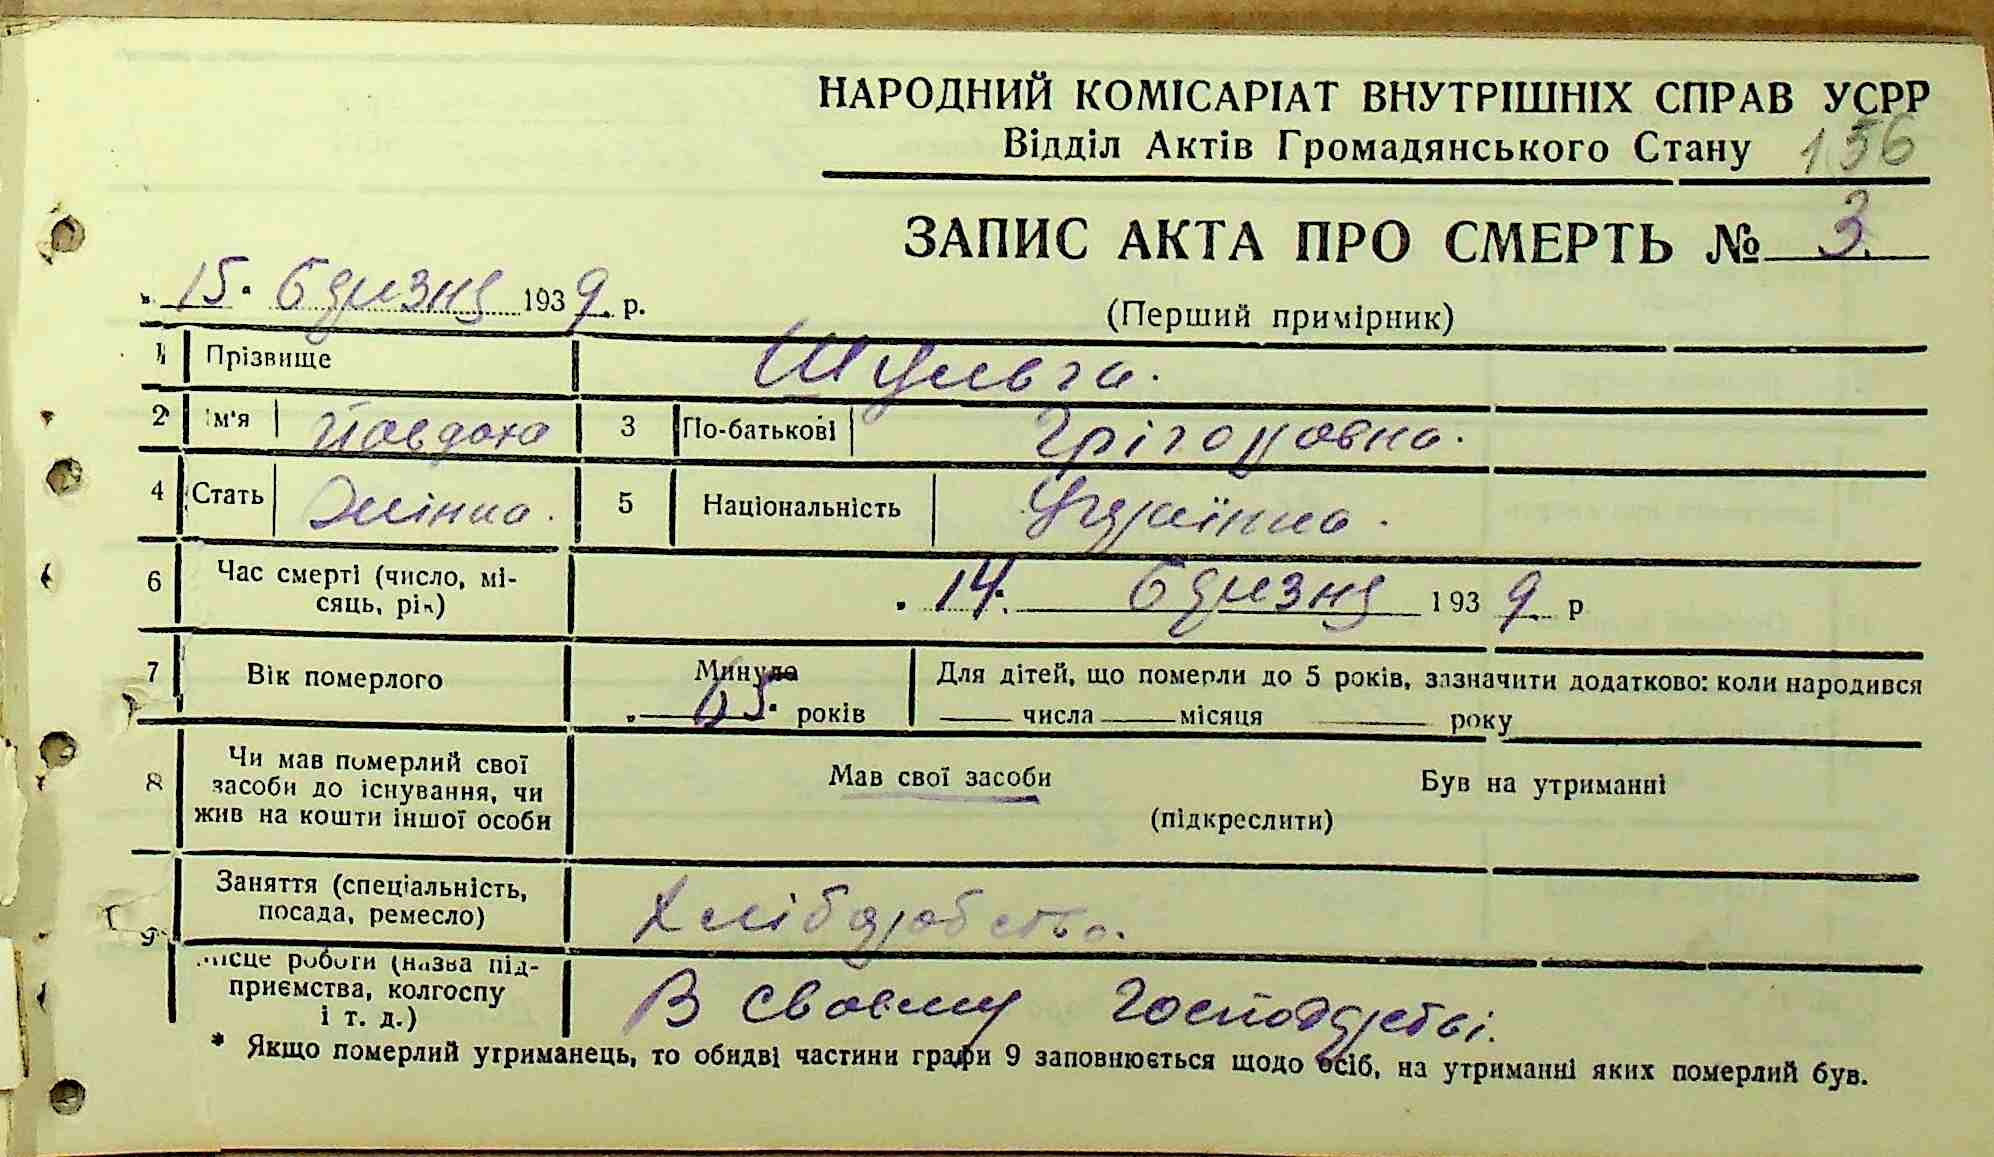 НАРОДНИЙ КОМІСАРІАТ ВНУТРІШНІХ СПРАВ УСРР
Відділ Актів Громадянського Стану 156
ЗАПИС АКТА ПРО СМЕРТЬ № 3.
„ 15 " березня 1939 р.
(Перший примірник)
1 Прізвище Шульга.
2 Ім'я Йовдоха 3 По-батькові Грігоровна.
4 Стать Жінка. 5 Національність Українка.
6 Час смерті (число, мі-
сяць, рік) „ 14. березня 1939 р
7 Вік померлого Минуло 65 років Для дітей, що померли до 5 років, зазначити додатково: коли народився
числа місяця року
8 Чи мав померлий свої
засоби до існування, чи
жив на кошти іншої особи
Мав свої засоби Був на утриманні
(підкреслити)
9 Заняття (спеціальність,
посада, ремесло) Хліборобство.
Місце роботи (назва під-
приємства, колгоспу
і т. д.) В своєму господарстві.
* Якщо померлий утриманець, то обидві частини графи 9 заповнюється щодо осіб, на утриманні яких померлий був.